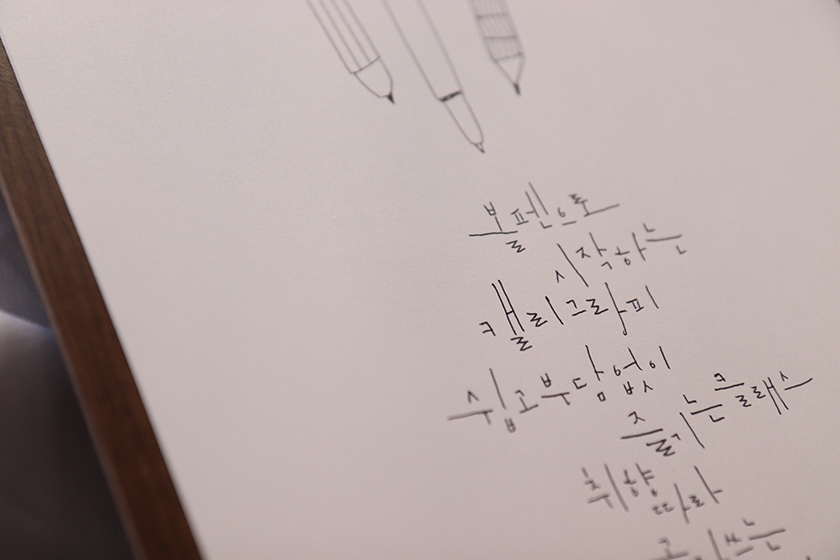 볼펜으로
시작하는
캘리그라피
쉽고 부담 없이
즐기는 클래스
취향 따라